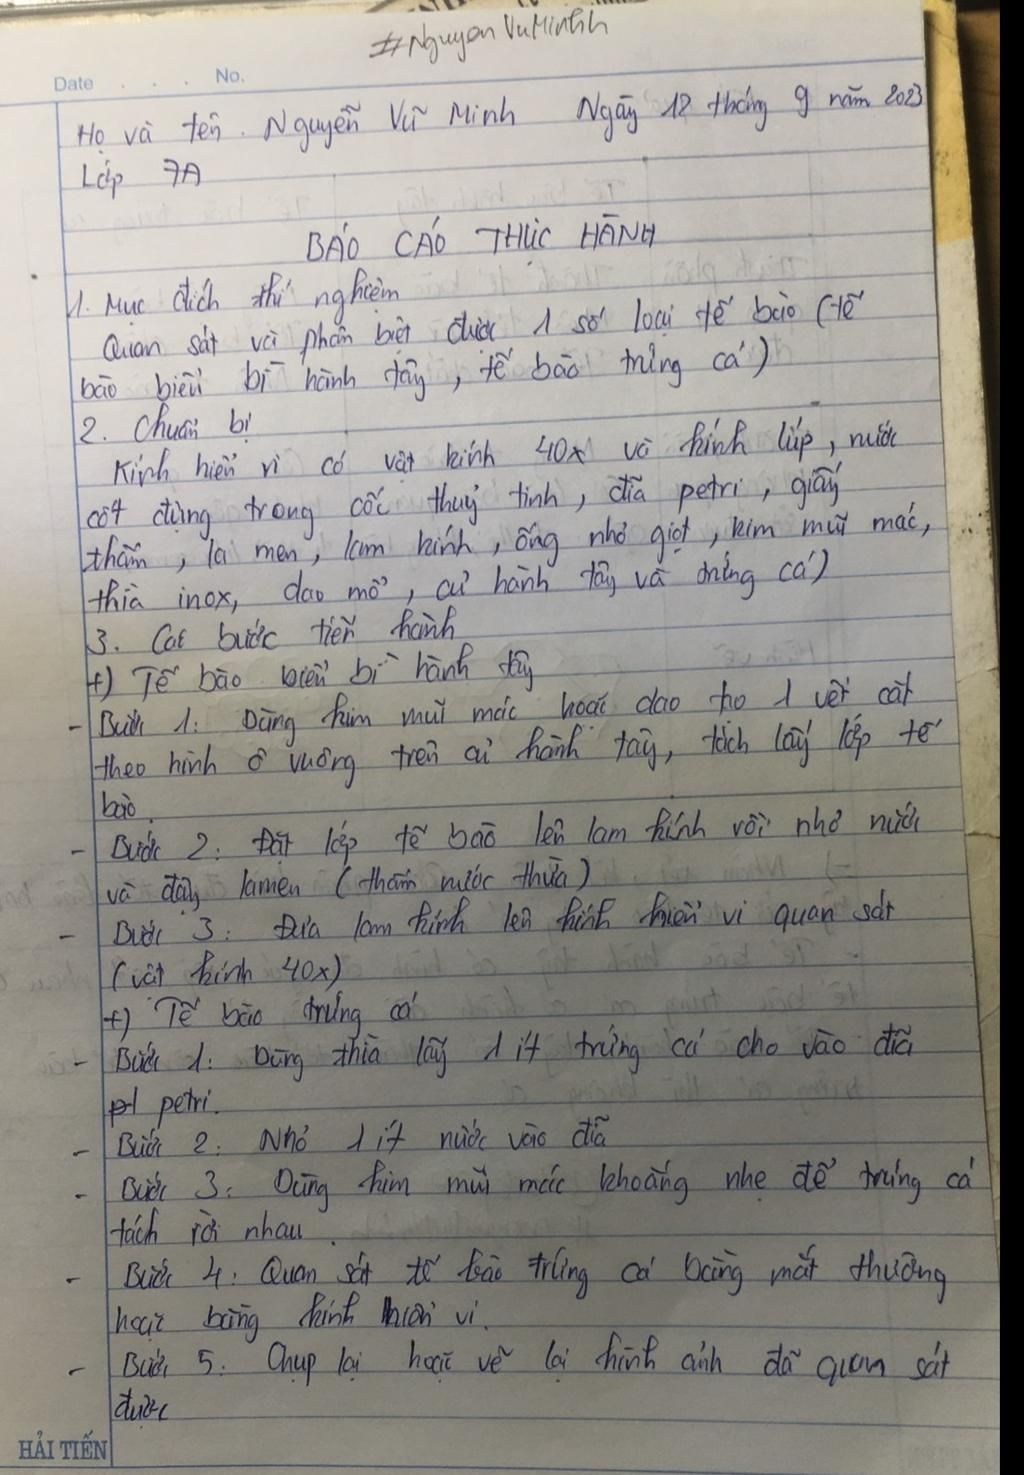 #NguyenVuMinhh
Date . . . No.
Họ và tên . Nguyễn Vũ Minh Ngày 12 tháng 9 năm 2023
Lớp 7A
BÁO CÁO THỰC HÀNH
1. Mục đích thí nghiệm
Quan sát và phân biệt được 1 số loại tế bào (tế
bào biểu bì hành tây, tế bào trứng cá)
2. Chuẩn bị
Kính hiển vi có vật kính 40x và kính lúp, nước
cất đựng trong cốc thuỷ tinh, đĩa petri, giấy
thấm, la men, lam kính, ống nhỏ giọt, kim mũi mác,
thìa inox, dao mổ, củ hành tây và trứng cá)
3. Các bước tiến hành
+) Tế bào biểu bì hành tây
- Bước 1: Dùng kim mũi mác hoặc dao tạo 1 vết cắt
theo hình ô vuông trên củ hành tây, tách lấy lớp tế
bào.
- Bước 2: Đặt lớp tế bào lên lam kính rồi nhỏ nước
và đậy lamen (thấm nước thừa)
- Bước 3: Đưa lam kính lên kính hiển vi quan sát
(vật kính 40x)
+) Tế bào trứng cá
- Bước 1: Dùng thìa lấy 1 ít trứng cá cho vào đĩa
petri.
- Bước 2: Nhỏ 1 ít nước vào đĩa
- Bước 3: Dùng kim mũi mác khoắng nhẹ để trứng cá
tách rời nhau.
- Bước 4: Quan sát tế bào trứng cá bằng mắt thường
hoặc bằng kính hiển vi.
- Bước 5: Chụp lại hoặc vẽ lại hình ảnh đã quan sát
được
HẢI TIẾN